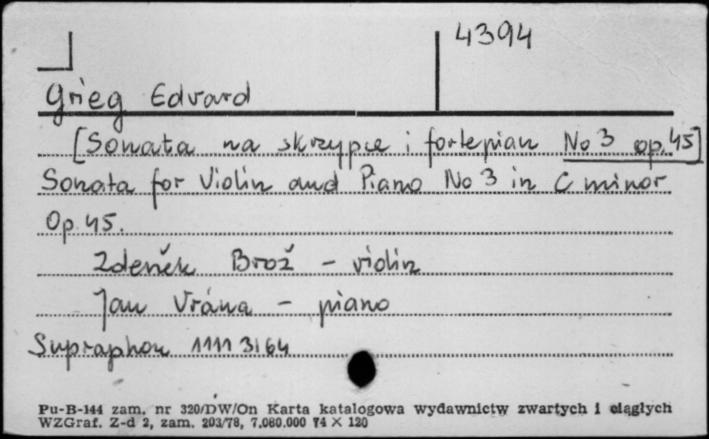 4394
Grieg Edvard
[Sonata na skrzypce i fortepian No 3 op. 45]
Sonata for Violin and Piano No 3 in C minor
Op. 45.
Zdeněk Brož - violin
Jan Vrána - piano
Supraphon 1111 3164
Pu-B-144 zam. nr 320/DW/On Karta katalogowa wydawnictw zwartych i ciągłych
WZGraf. Z-d 2, zam. 203/78, 7.080.000 74 X 120